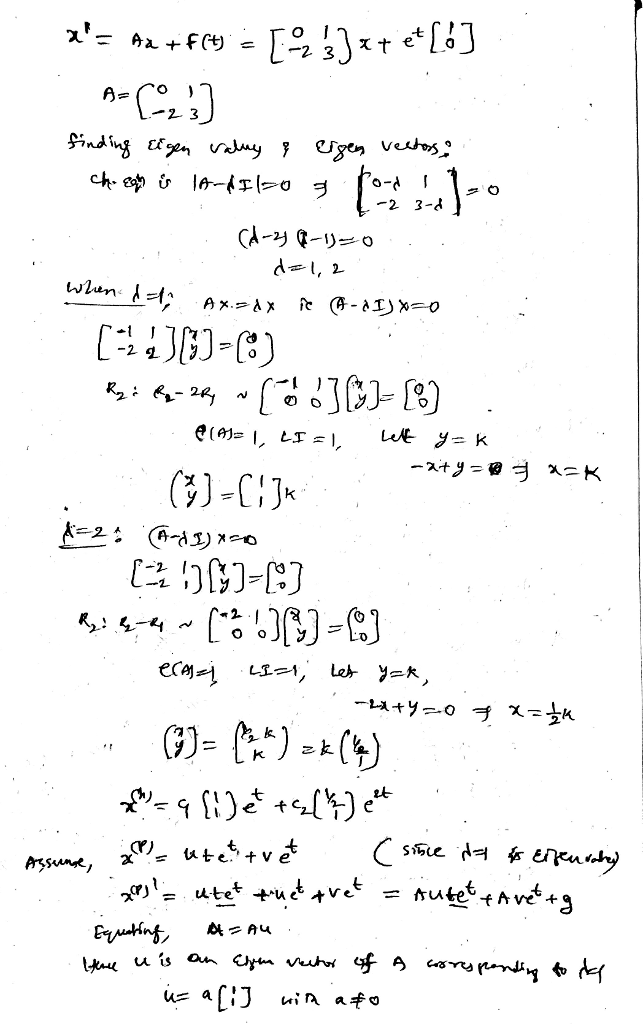 x' = Ax + f(t) = [0 1 -2 3] x + e^t [1 0]
A = [0 1 -2 3]
finding Eigen values & Eigen vectors:
ch. eqn is |A-λI|=0 ⇒ [0-λ 1 -2 3-λ] = 0
(λ-2)(λ-1)=0
λ=1, 2
When λ=1; AX=λX ie (A-λI)X=0
[-1 1 -2 2][x y]=[0 0]
R2: R2-2R1 ~ [-1 1 0 0][x y]=[0 0]
ρ(A)=1, LI=1, Let y=k
-x+y=0 ⇒ x=k
(x y)=[1 1]k
λ=2: (A-λI)X=0
[-2 1 -2 1][x y]=[0 0]
R2: R2-R1 ~ [-2 1 0 0][x y]=[0 0]
ρ(A)=1 LI=1, Let y=k,
-2x+y=0 ⇒ x=1/2 k
(x y)=(1/2 k k)=k(1/2 1)
x^(h) = c1 [1 1] e^t + c2 (1/2 1) e^2t
Assume, x^(p) = u t e^t + v e^t (since λ=1 is Eigenvalue)
x^(p)' = u t e^t + u e^t + v e^t = A u t e^t + A v e^t + g
Equating, = Au
Here u is an Eigen vector of A corresponding to λ=1
u = a[1 1] with a≠0